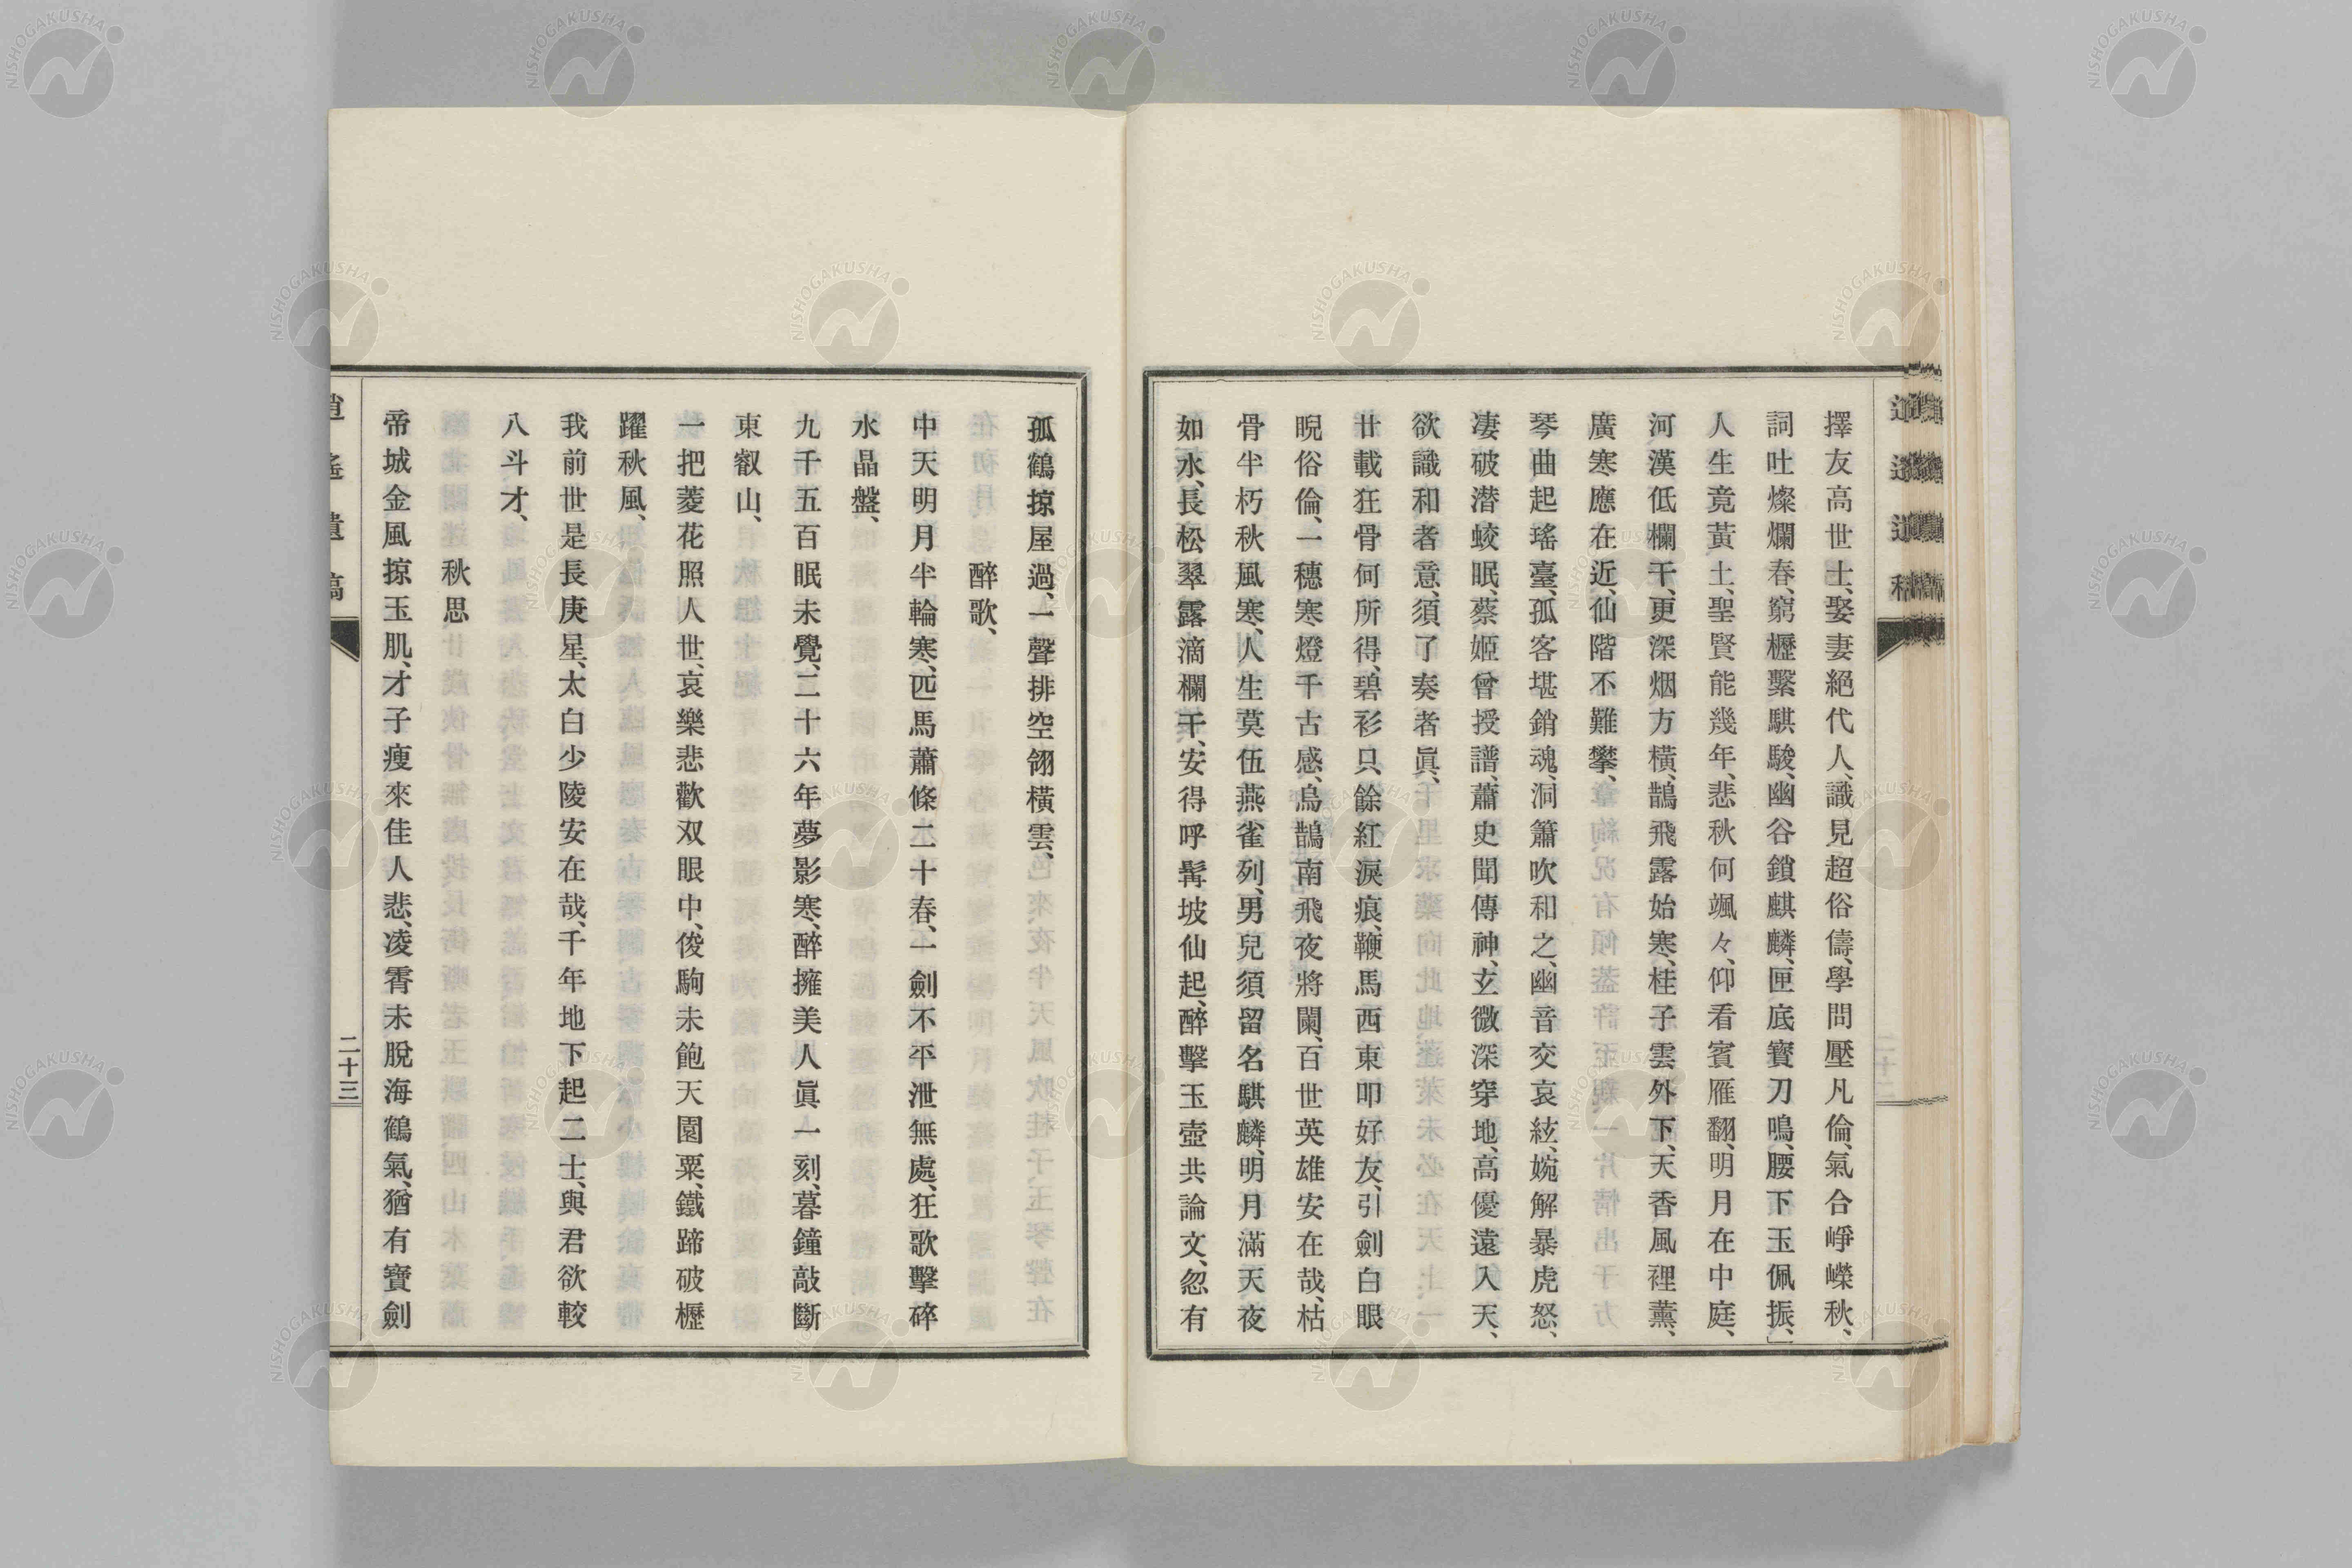 擇友高世士、娶妻絕代人、識見超俗儔、學問壓凡倫、氣合崢嶸秋、
詞吐燦爛春、窮櫪繫騏駿、幽谷鎖麒麟、匣底寶刀鳴、腰下玉佩振、」
人生竟黃土、聖賢能幾年、悲秋何颯々、仰看賓雁翻、明月在中庭、
河漢低欄干、更深烟方橫、鵲飛露始寒、桂子雲外下、天香風裡薰、
廣寒應在近、仙階不難攀、
琴曲起瑤臺、孤客堪銷魂、洞簫吹和之、幽音交哀絃、婉解暴虎怒、
凄破潜蛟眠、蔡姬曾授譜、蕭史聞傳神、玄微深穿地、高優遠入天、
欲識和者意、須了奏者眞、
廿載狂骨何所得、碧衫只餘紅淚痕、鞭馬西東叩好友、引劍白眼
睨俗倫、一穗寒燈千古感、烏鵲南飛夜將闌、百世英雄安在哉、枯
骨半朽秋風寒、人生莫伍燕雀列、男兒須留名騏麟、明月滿天夜
如水、長松翠露滴欄干、安得呼髯坡仙起、醉擊玉壺共論文、忽有
孤鶴掠屋過、一聲排空翎橫雲、
醉歌、
中天明月半輪寒、匹馬蕭條二十春、一劍不平泄無處、狂歌擊碎
水晶盤、
九千五百眠未覺、二十六年夢影寒、醉擁美人眞一刻、暮鐘敲斷
東叡山、
一把菱花照人世、哀樂悲歡双眼中、俊駒未飽天園粟、鐵蹄破櫪
躍秋風、
我前世是長庚星、太白少陵安在哉、千年地下起二士、與君欲較
八斗才、
秋思
帝城金風掠玉肌、才子瘦來佳人悲、凌霄未脫海鶴氣、猶有寶劍
二十三